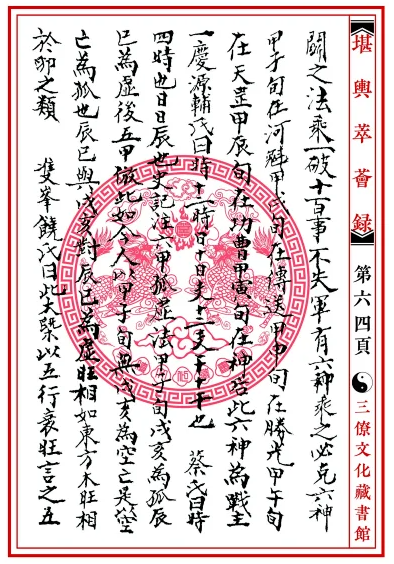 堪輿萃薈録
第六四頁
三僚文化藏書館
闘之法乘一破十百事不失軍有六神乘之必克六神
甲子旬在河魁甲戌旬在傳送甲申旬在勝光甲午旬
在天罡甲辰旬在功曹甲寅旬在神后此六神為戰主
一慶源輔氏曰時十二時日十日夫十二支十干也 蔡氏曰時
四時也日日辰也史記注六甲孤虛法甲子旬戌亥為孤辰
巳為虛後五甲倣此如今人以甲子旬無戌亥為空亡是空
亡為孤也辰巳與戌亥對辰巳為虛旺相如東方木旺相
於卯之類 隻峯饒氏曰此大槩以五行衰旺言之五